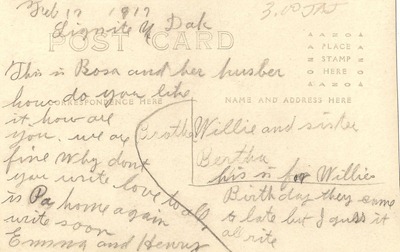 Feb 17 1917
3.00
Lignite N Dak
POST CARD
AZO
PLACE
STAMP
HERE
AZO
This is Rosa and her husber
how do you like
CORRESPONDENCE HERE
NAME AND ADDRESS HERE
it how are
you. we are
fine Why dont
you write love to all
is Pa home again
write soon
Emma and Henry
Brother Willie and sister
Bertha
this is for Willie
Birthday they came
to late but I guess it
al rite